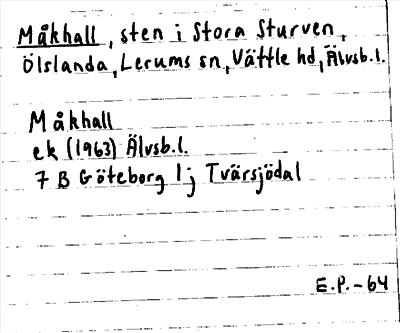 Måkhall, sten i Stora Sturven,
Ölslanda, Lerums sn, Vättle hd, Älvsb.l.
Måkhall
ek (1963) Älvsb.l.
7 B Göteborg 1 j Tvärsjödal
E.P.-64